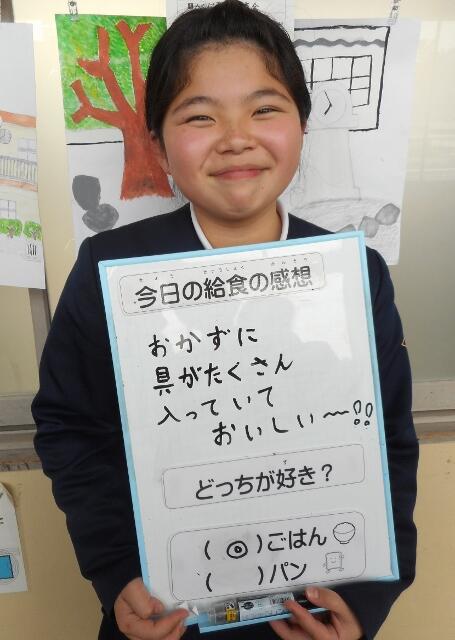 今日の給食の感想
おかずに
具がたくさん
入っていて
おいしい〜!!
どっちが好き？
( ◎ )ごはん
(　　)パン